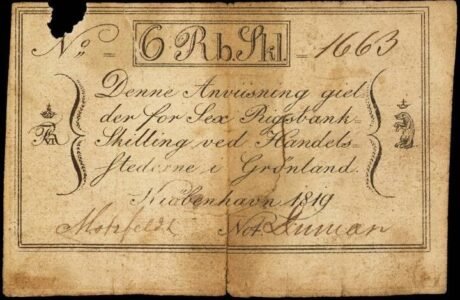 No = 6 Rb. Skl. = 1663
Denne Anviisning giel
der for Sex Rigsbank=
Skilling ved Handels=
stederne i Grönland.
Kiøbenhavn 1819
Motzfeldt Not. Duncan